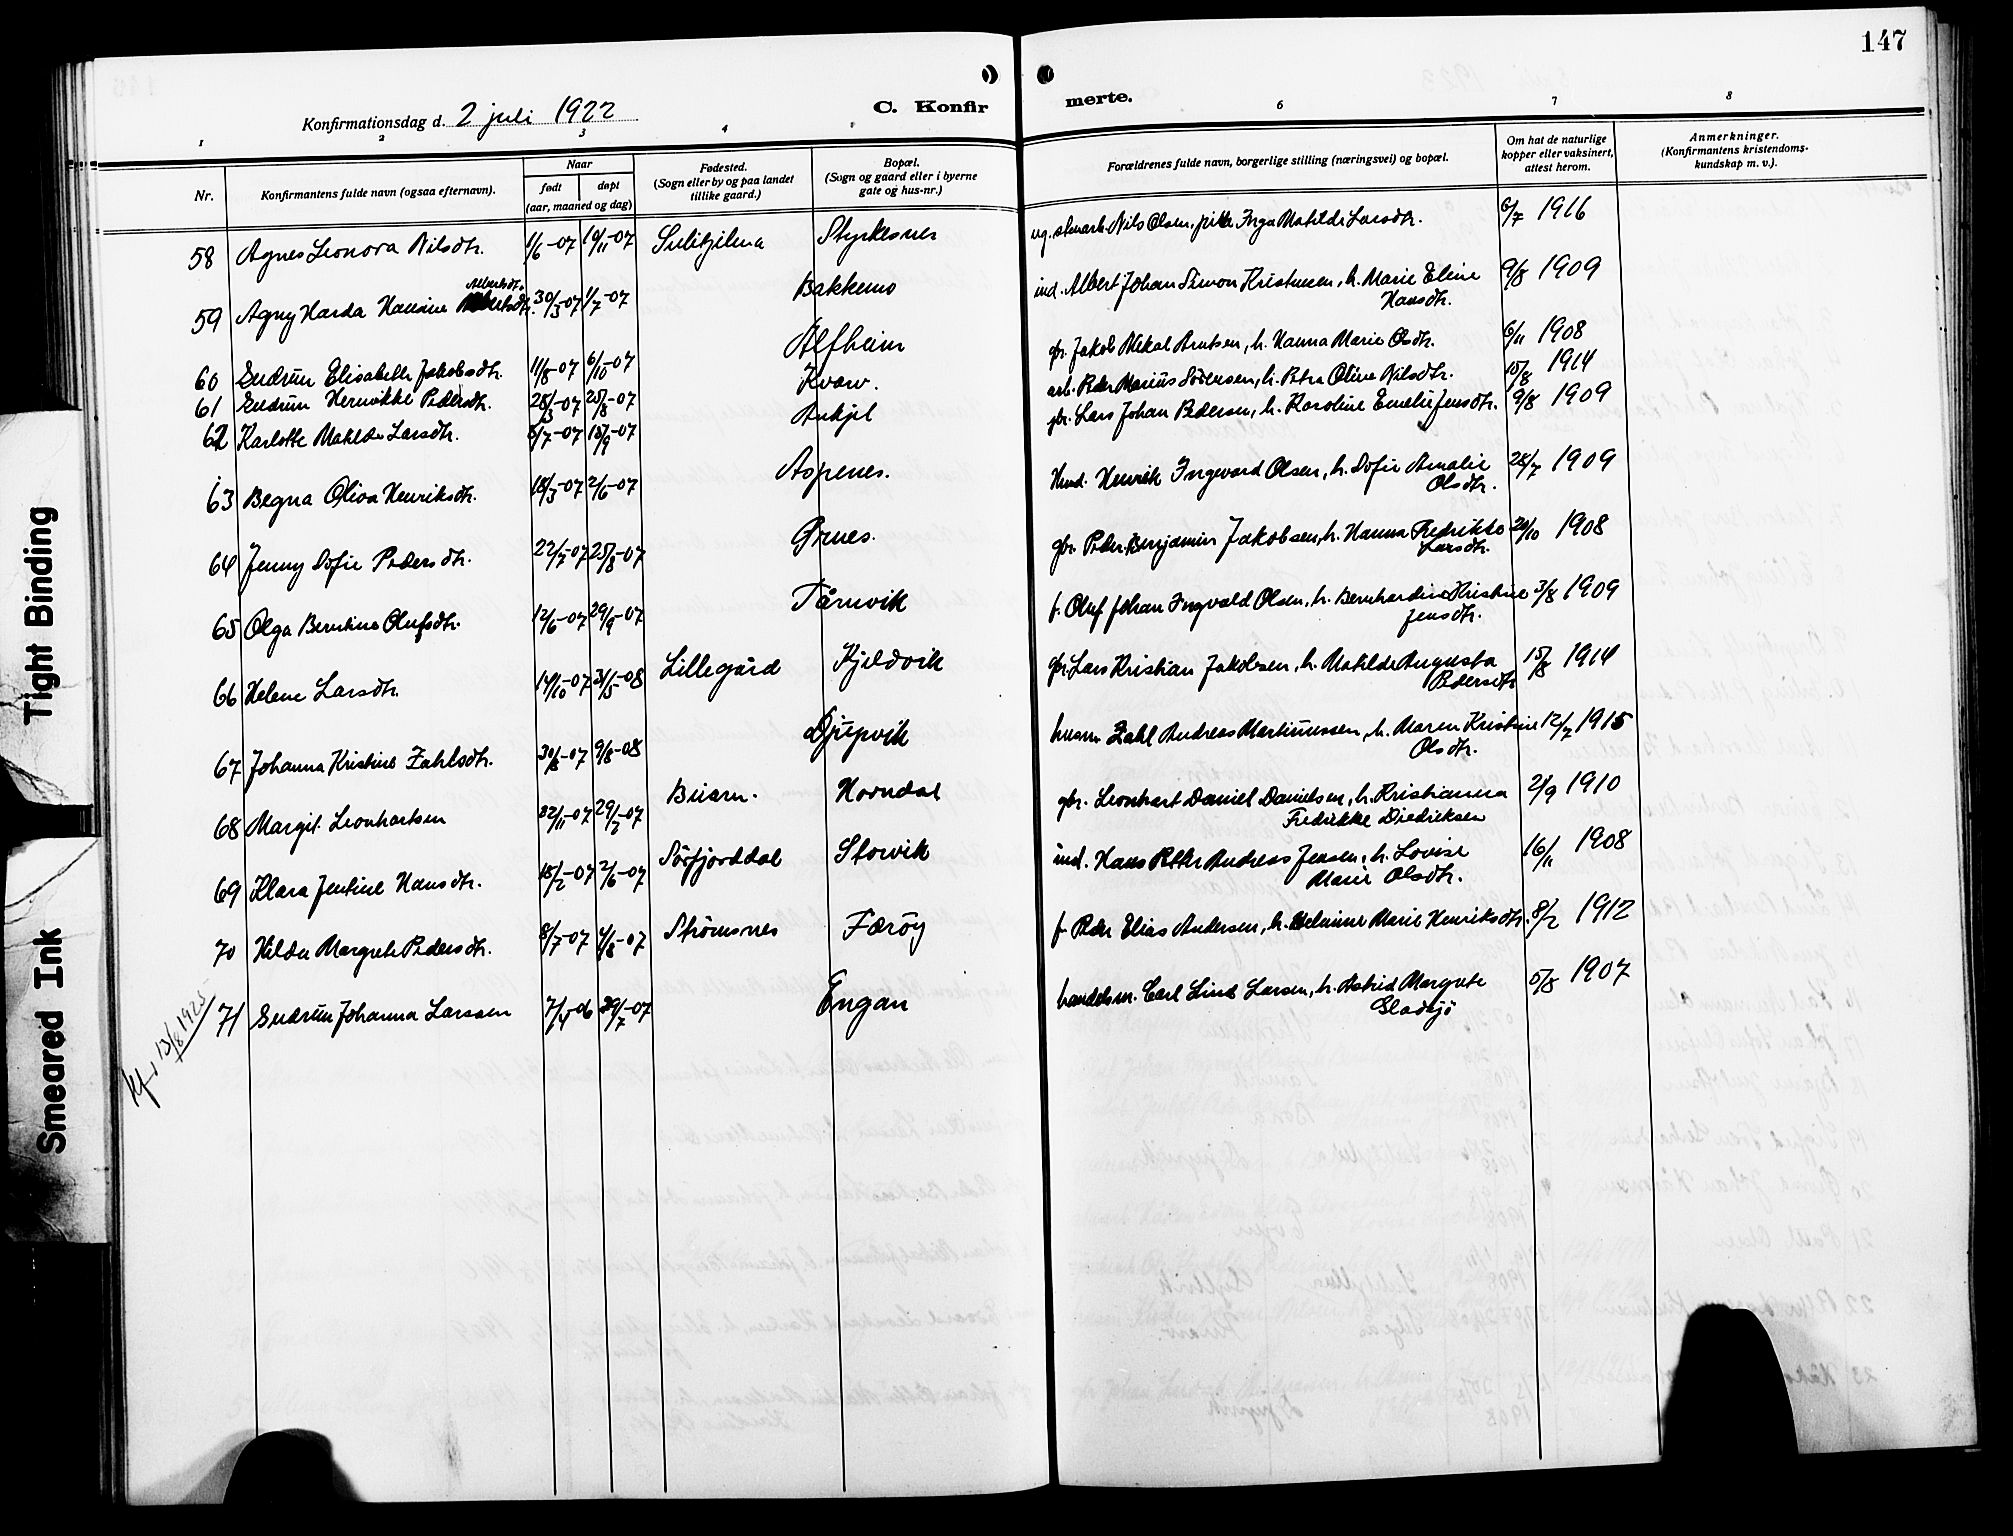 147
Konfirmationsdag d. 2 juli 1922
C. Konfir merte.
1 2 3 4 5 6 7 8
Nr.
Konfirmantens fulde navn (ogsaa efternavn).
Naar
født døpt
(aar, maaned og dag)
Fødested.
(Sogn eller by og paa landet
tillike gaard.)
Bopæl.
(Sogn og gaard eller i byerne
gate og hus-nr.)
Forældrenes fulde navn, borgerlige stilling (næringsvei) og bopæl.
Om hat de naturlige
kopper eller vaksinert,
attest herom.
Anmerkninger.
(Konfirmantens kristendoms-
kundskap m. v.).
58 Agnes Leonora Nilsdtr. 1/6-07 10/11-07 Sulitjelma Styrkesnes ug. Nils Olsen, pike Inga Matilde Larsdtr. 6/7 1916
Albertsdtr.
59 Agny Harda Hansine 30/3-07 1/7-07 Bakkemo ind. Albert Johan Simon Kristensen, h. Marie Eline 9/8 1909
Hansdtr.
60 Gudrun Elisabeth Jakobsdtr. 11/8-07 6/10-07 Alfheim gbr. Jakob Mikal Arntsen, h. Hanna Marie Olsdtr. 6/11 1908
61 Gudrun Henrikke Pedersdtr. 28/3-07 25/8-07 Kvarv. arb. Peder Marius Sörensen, h. Petra Oline Nilsdtr. 15/8 1914
62 Karlotte Matilde Larsdtr. 5/7-07 15/9-07 Ankjel gbr. Lars Johan Pedersen, h. Karoline Emelie Jensdtr. 9/8 1909
63 Begna Oliva Henriksdtr. 18/3-07 2/6-07 Aspenes. Henrik Ingevard Olsen, h. Sofie Amalie 28/7 1909
Olsdtr.
64 Jenny Sofie Pedersdtr. 22/7-07 25/8-07 Ørnes. gbr. Peder Benjamin Jakobsen, h. Hanna Fredrikke 20/10 1908
Larsdtr.
65 Olga Berntine Olufsdtr. 12/6-07 29/9-07 Tårnvik f. Oluf Johan Ingvald Olsen, h. Bernhardine Kristine 3/8 1909
Jensdtr.
66 Helene Larsdtr. 14/10-07 31/5-08 Lillegård Kjeldvik gbr. Lars Kristian Jakobsen, h. Matilde Augusta 15/8 1914
Pedersdtr
67 Johanna Kristine Zahlsdtr. 30/8-07 9/8-08 Djupvik husm. Zahl Andreas Martinussen, h. Maren Kristine 12/7 1915
Olsdtr.
68 Margit Leonhartsen 29/7-07 Beiarn. Horndal gbr. Leonhart Daniel Danielsen, h. Kristianna 2/9 1910
Fredrikke Diedriksen
69 Klara Jentine Hansdtr. 18/2-07 2/6-07 Sörfjorddal Storvik ind. Hans Peter Andreas Jensen, h. Lovise 16/11 1908
Marie Olsdtr.
70 Hilda Margrete Pedersdtr. 8/7-07 4/8-07 Strömsnes Færöy f. Peder Elias Andersen, h. Helmine Marie Henriksdtr. 8/2 1912
71 Gudrun Johanna Larssen 7/4-06 29/7-07 Engan handelsm. Carl Lind Larsen, h. Astrid Margrete 5/8 1907
Gladsjö
kf. 13/8 1925
Tight Binding
Smeared Ink